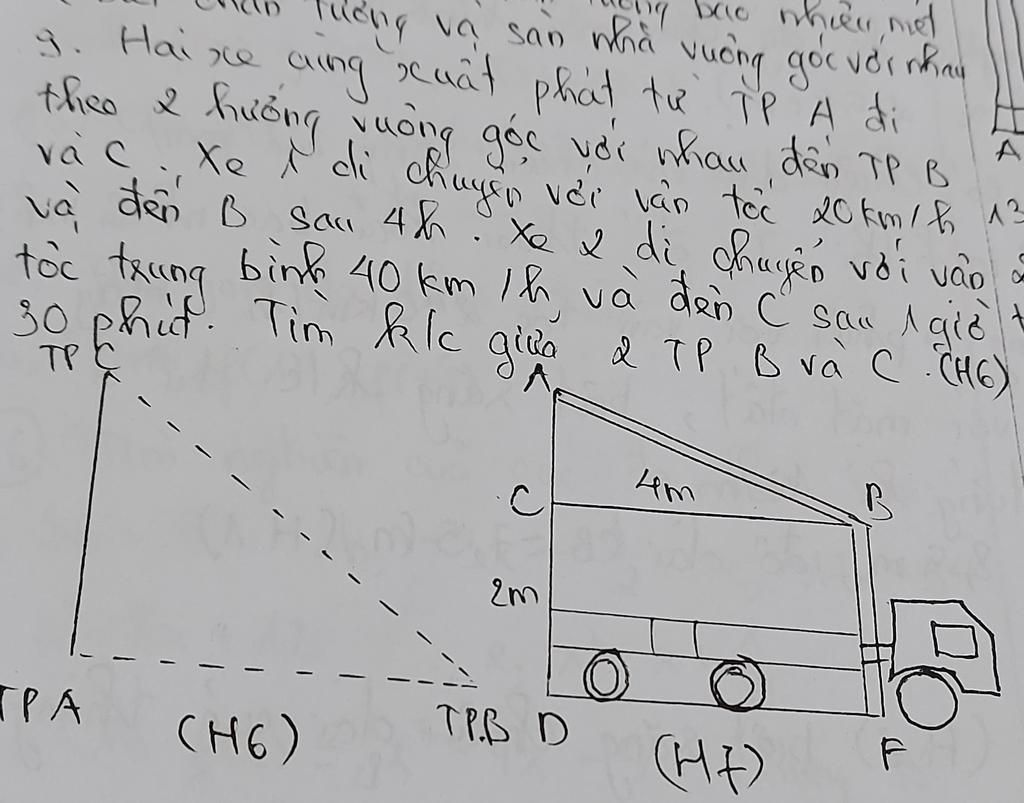 chân tường và sàn nhà vuông góc với nhau
bao nhiêu mét
9. Hai xe cùng xuất phát từ TP A đi
theo 2 hướng vuông góc với nhau đến TP B
và C. Xe 1 di chuyển với vận tốc 20km/h
và đến B sau 4h. Xe 2 di chuyển với vận
tốc trung bình 40km/h và đến C sau 1 giờ
30 phút. Tìm k/c giữa 2 TP B và C. (H6)
A
13
TP C
TP A
TP.B
(H6)
A
4m
C
B
2m
D
F
(H7)